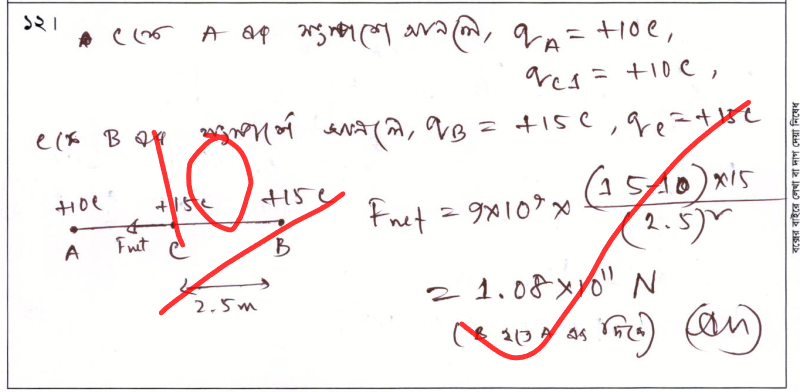 ১২। C কে A এর সংস্পর্শে আনলে, qA = +10C,
qC1 = +10C,
C কে B এর সংস্পর্শে আনলে, qB = +15C, qC = +15C
10
+10C +15C +15C
A Fnet C B
2.5m
Fnet = 9×10⁹ × (15-10)×15 / (2.5)²
= 1.08×10¹¹ N
(B হতে A এর দিকে) (Ans)
বক্সের বাইরে লেখা বা দাগ দেয়া নিষেধ